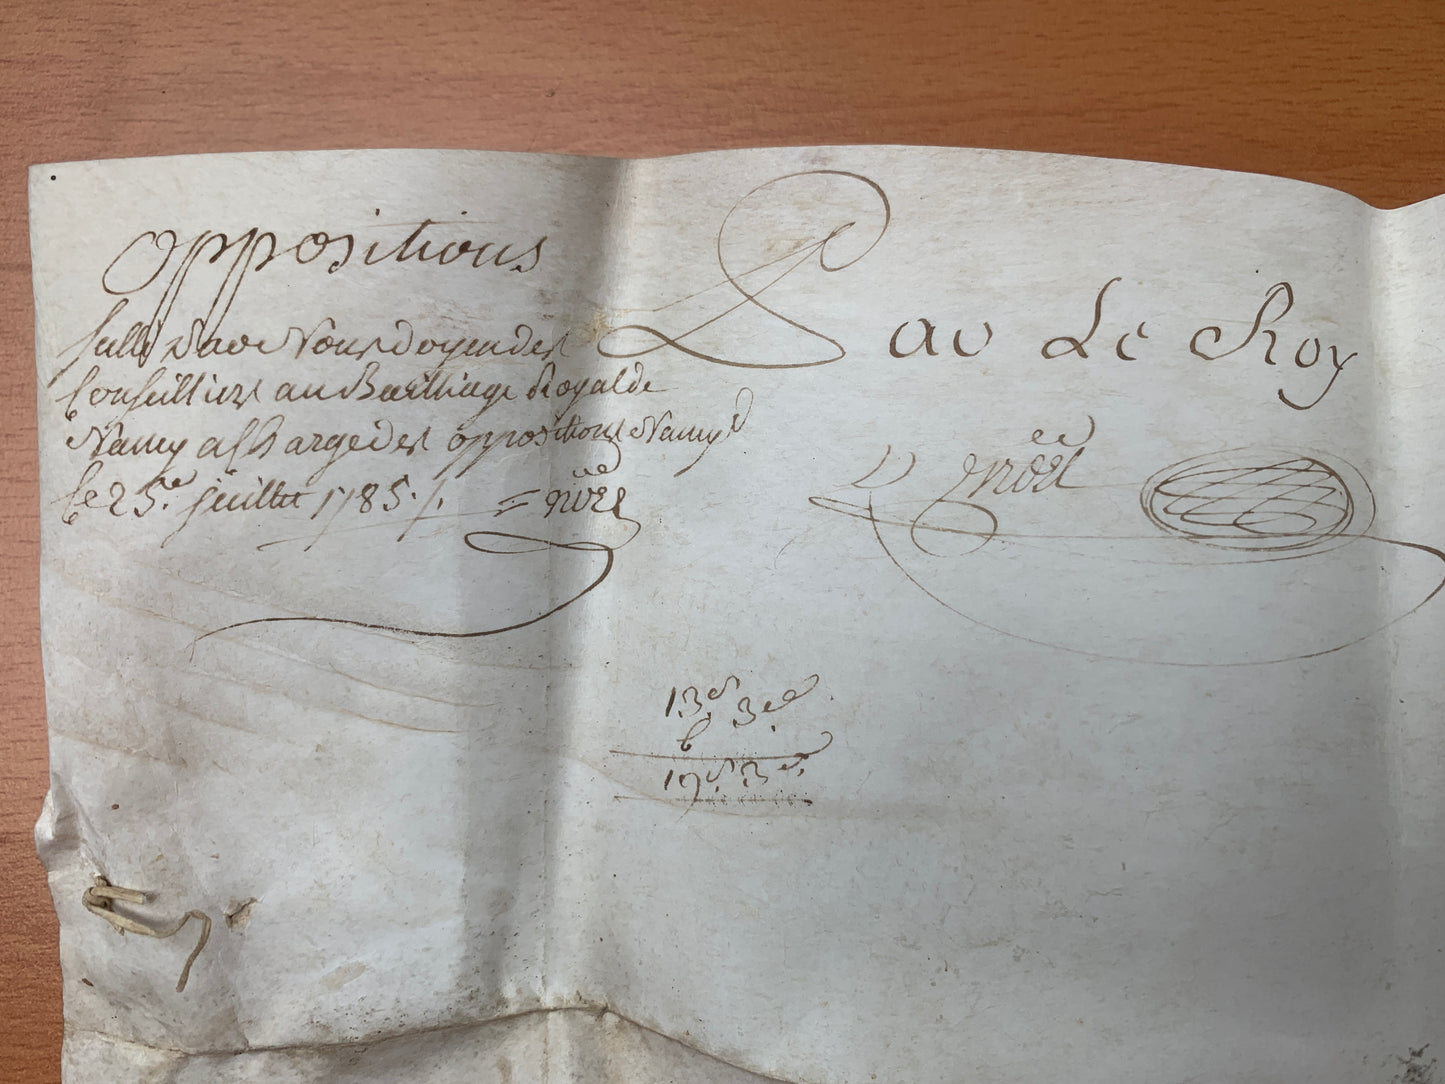 oppositions
Scellé par Nous doyen des
Conseilliers au Bailliage Royal de
Nancy a la charge des oppositions Nancy
le 25.e juillet 1785 ./. = noël
Par Le Roy
noël
13. 3
6
19. 3